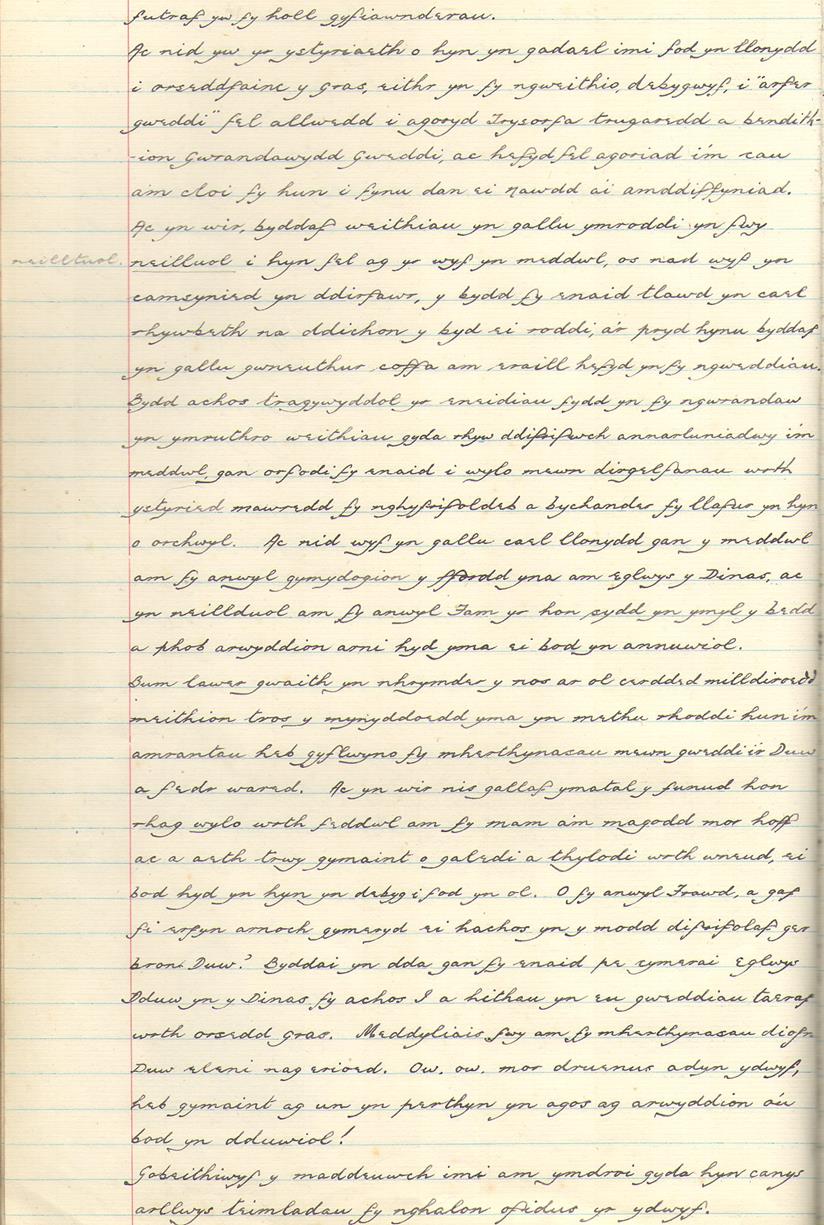 futraf yw fy holl gyfiawnderau.
Ac nid yw yr ystyriaeth o hyn yn gadael imi fod yn llonydd
i orseddfainc y Gras, eithr yn fy ngweithio, debygwyf, i "arfer
gweddi" fel allwedd i agoryd Trysorfa trugaredd a bendith-
-ion Gwrandawydd Gweddi, ac hefyd fel agoriad i'm cau
a'm cloi fy hun i fynu dan ei nawdd a'i amddiffyniad.
Ac yn wir, byddaf weithiau yn gallu ymroddi yn fwy
neilltuol. neilluol i hyn fel ag yr wyf yn meddwl, os nad wyf yn
camsynied yn ddirfawr, y bydd fy enaid tlawd yn cael
rhywbeth na ddichon y byd ei roddi, a'r pryd hynu byddaf
yn gallu gwneuthur coffa am eraill hefyd yn fy ngweddiau.
Bydd achos tragywyddol yr eneidiau fydd yn fy ngwrandaw
yn ymruthro weithiau gyda rhyw ddifrifwch annarluniadwy i'm
meddwl, gan orfodi fy enaid i wylo mewn dirgelfanau wrth
ystyried mawredd fy nghyfrifoldeb a bychander fy llafur yn hyn
o orchwyl. Ac nid wyf yn gallu cael llonydd gan y meddwl
am fy anwyl gymydogion y ffordd yna am Eglwys y Dinas, ac
yn neillduol am fy anwyl Fam yr hon sydd yn ymyl y bedd
a phob arwyddion arni hyd yma ei bod yn annuwiol.
Bum lawer gwaith yn nhrymder y nos ar ol cerdded milldiroedd
meithion tros y mynyddoedd yma yn methu rhoddi hun i'm
amrantau heb gyflwyno fy mherthynasau mewn gweddi i'r Duw
a fedr wared. Ac yn wir nis gallaf ymatal y funud hon
rhag wylo wrth feddwl am fy mam a'm magodd mor hoff
ac a aeth trwy gymaint o galedi a thylodi wrth wneud, ei
bod hyd yn hyn yn debyg i fod yn ol. O fy anwyl Frawd, a gaf
fi erfyn arnoch gymeryd ei hachos yn y modd difrifolaf ger
bron Duw? Byddai yn dda gan fy enaid pe cymerai Eglwys
Dduw yn y Dinas fy achos I a hithau yn eu gweddiau taeraf
wrth orsedd Gras. Meddyliais fwy am fy mherthynasau diofn
Duw eleni nag erioed. Ow. ow. mor druenus adyn ydwyf,
heb gymaint ag un yn perthyn yn agos ag arwyddion o'u
bod yn dduwiol!
Gobeithiwyf y maddeuwch imi am ymdroi gyda hyn canys
arllwys teimladau fy nghalon ofidus yr ydwyf.